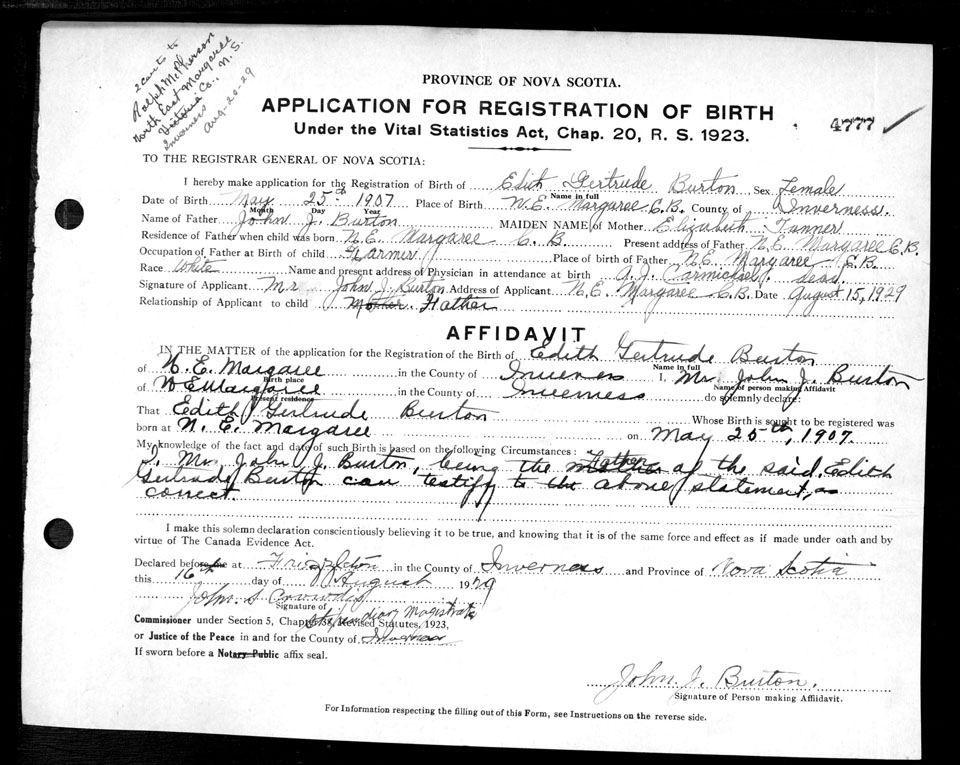 2 Certs to
Ralph McPherson
North East Margaree
Victoria Co., N. S.
Inverness
Aug-20-29
PROVINCE OF NOVA SCOTIA.
APPLICATION FOR REGISTRATION OF BIRTH
Under the Vital Statistics Act, Chap. 20, R. S. 1923.
4777 ✓
TO THE REGISTRAR GENERAL OF NOVA SCOTIA:
I hereby make application for the Registration of Birth of Edith Gertrude Burton Sex Female
Name in full
Date of Birth May 25th 1907 Place of Birth N.E. Margaree C.B. County of Inverness.
Month Day Year
Name of Father John J. Burton MAIDEN NAME of Mother Elizabeth Tanner
Residence of Father when child was born N.E. Margaree C. B. Present address of Father N.E. Margaree C.B.
Occupation of Father at Birth of child Farmer Place of birth of Father N.E. Margaree C.B.
Race White Name and present address of Physician in attendance at birth A. J. Carmichael, dead.
Signature of Applicant Mr John J. Burton Address of Applicant N.E. Margaree C.B. Date August 15, 1929
Relationship of Applicant to child Mother Father
AFFIDAVIT
IN THE MATTER of the application for the Registration of the Birth of Edith Gertrude Burton
Name in full
of N. E. Margaree in the County of Inverness I, Mr. John J. Burton
Birth place Name of person making Affidavit
of N E Margaree in the County of Inverness do solemnly declare:
Present residence
That Edith Gertrude Burton Whose Birth is sought to be registered was
born at N. E. Margaree on May 25th, 1907.
My knowledge of the fact and date of such Birth is based on the following Circumstances:
I, Mr. John J. Burton, being the Father of the said Edith
Gertrude Burton can testify to the above statement, as
correct.
I make this solemn declaration conscientiously believing it to be true, and knowing that it is of the same force and effect as if made under oath and by
virtue of The Canada Evidence Act.
Declared before me at Frizzleton in the County of Inverness and Province of Nova Scotia
this 16th day of August 1929
John S
Signature of
Stipendiary Magistrate
Commissioner under Section 5, Chapter 38, Revised Statutes, 1923,
or Justice of the Peace in and for the County of Inverness
If sworn before a Notary Public affix seal.
John J. Burton.
Signature of Person making Affidavit.
For Information respecting the filling out of this Form, see Instructions on the reverse side.